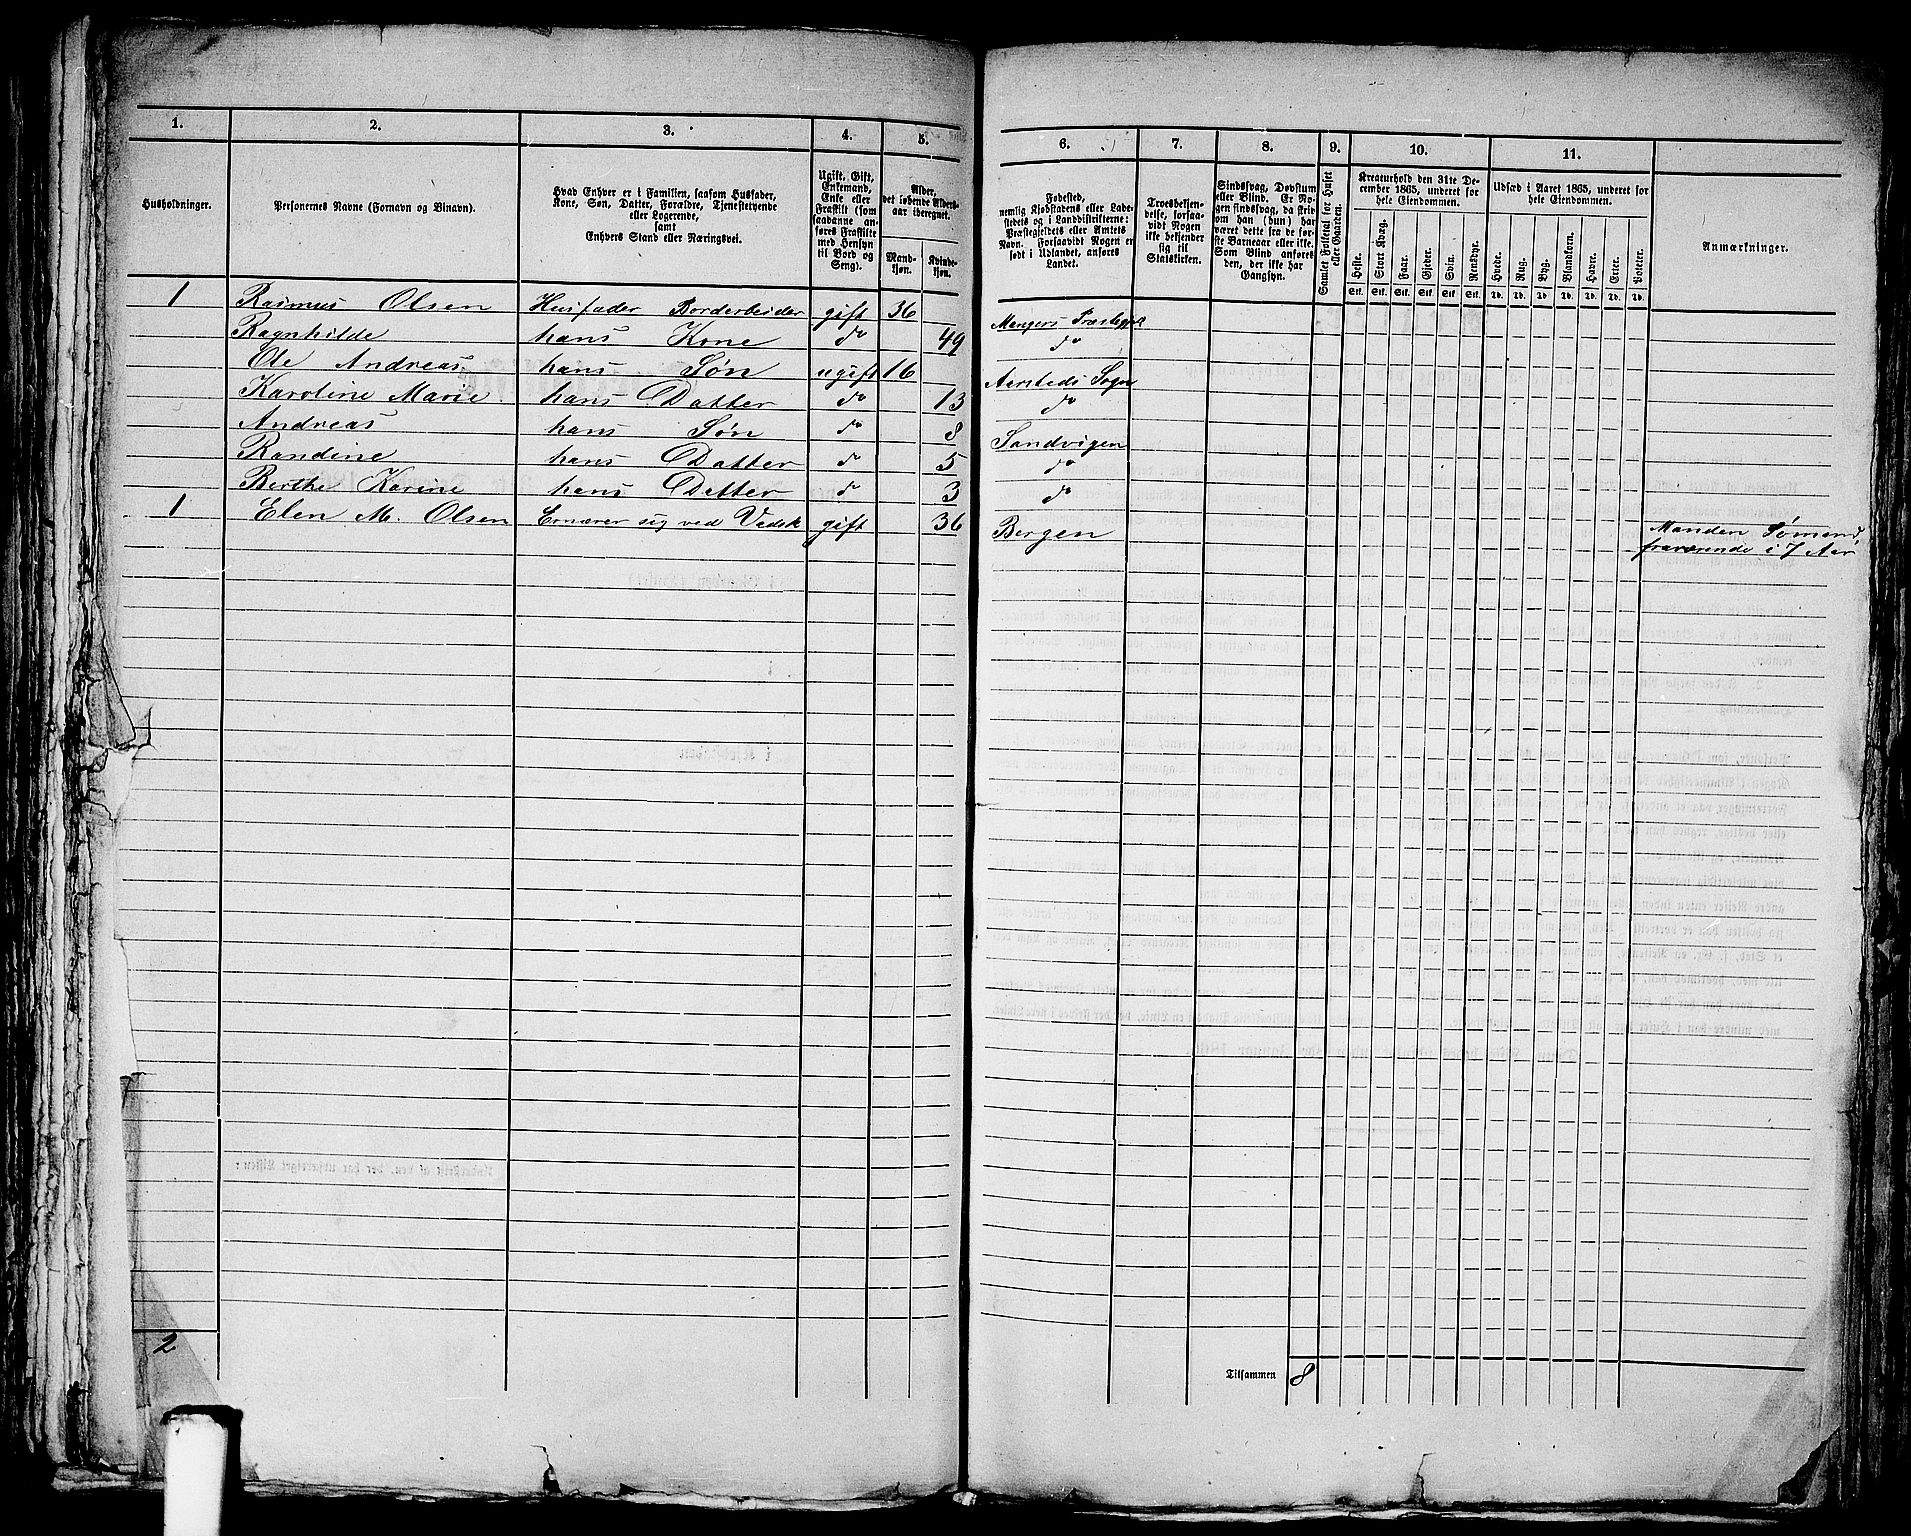 1. 2. 3. 4. 5.
Husholdninger.
Personernes Navne (Fornavn og Binavn).
Hvad Enhver er i Familien, saasom Husfader,
Kone, Søn, Datter, Forældre, Tjenestetyende
eller Logerende,
samt
Enhvers Stand eller Næringsvei.
Ugift, Gift,
Enkemand,
Enke eller
Fraskilt (som
saadanne an-
føres Fraskilte
med Hensyn
til Bord og
Seng).
Alder,
det løbende Alders-
aar iberegnet.
Mand-
kjøn.
Kvinde-
kjøn.
1 Rasmus Olsen Husfader Bordarbeider gift 36
Ragnhilde hans Kone do 49
Ole Andreas hans Søn ugift 16
Karoline Marie hans Datter do 13
Andreas hans Søn do 8
Randine hans Datter do 5
Berthe Karine hans Datter do 3
1 Elen M. Olsen Ernærer sig ved Vadsk gift 36
2
6. 7. 8. 9. 10. 11.
Fødested,
nemlig Kjøbstadens eller Lade-
stedets og i Landdistrikterne:
Præstegjeldets eller Amtets
Navn. Forsaavidt Nogen er
født i Udlandet, anføres
Landet.
Troesbekjen-
delse, forsaa-
vidt Nogen
ikke bekjender
sig til
Statskirken.
Sindssvag, Døvstum
eller Blind. Er No-
gen sindssvag, da skriv
om han (hun) har
været dette fra de før-
ste Barneaar eller ikke.
Som Blind anføres
den, der ikke har
Gangsyn.
Samlet Folketal for Huset
eller Gaarden.
Kreaturhold den 31te De-
cember 1865, underet for
hele Eiendommen.
Heste. Stort Kvæg. Faar. Gjeder. Svin. Rensdyr.
Stk. Stk. Stk. Stk. Stk. Stk.
Udsæd i Aaret 1865, underet for
hele Eiendommen.
Hvede. Rug. Byg. Blandkorn. Havre. Erter. Poteter.
Td. Td. Td. Td. Td. Td. Td.
Anmærkninger.
Mangers Præstegjeld
do
Aarstads Sogn
do
Sandvigen
do
do
Bergen Manden Sømand,
fraværende i 7 Aar
Tilsammen 8